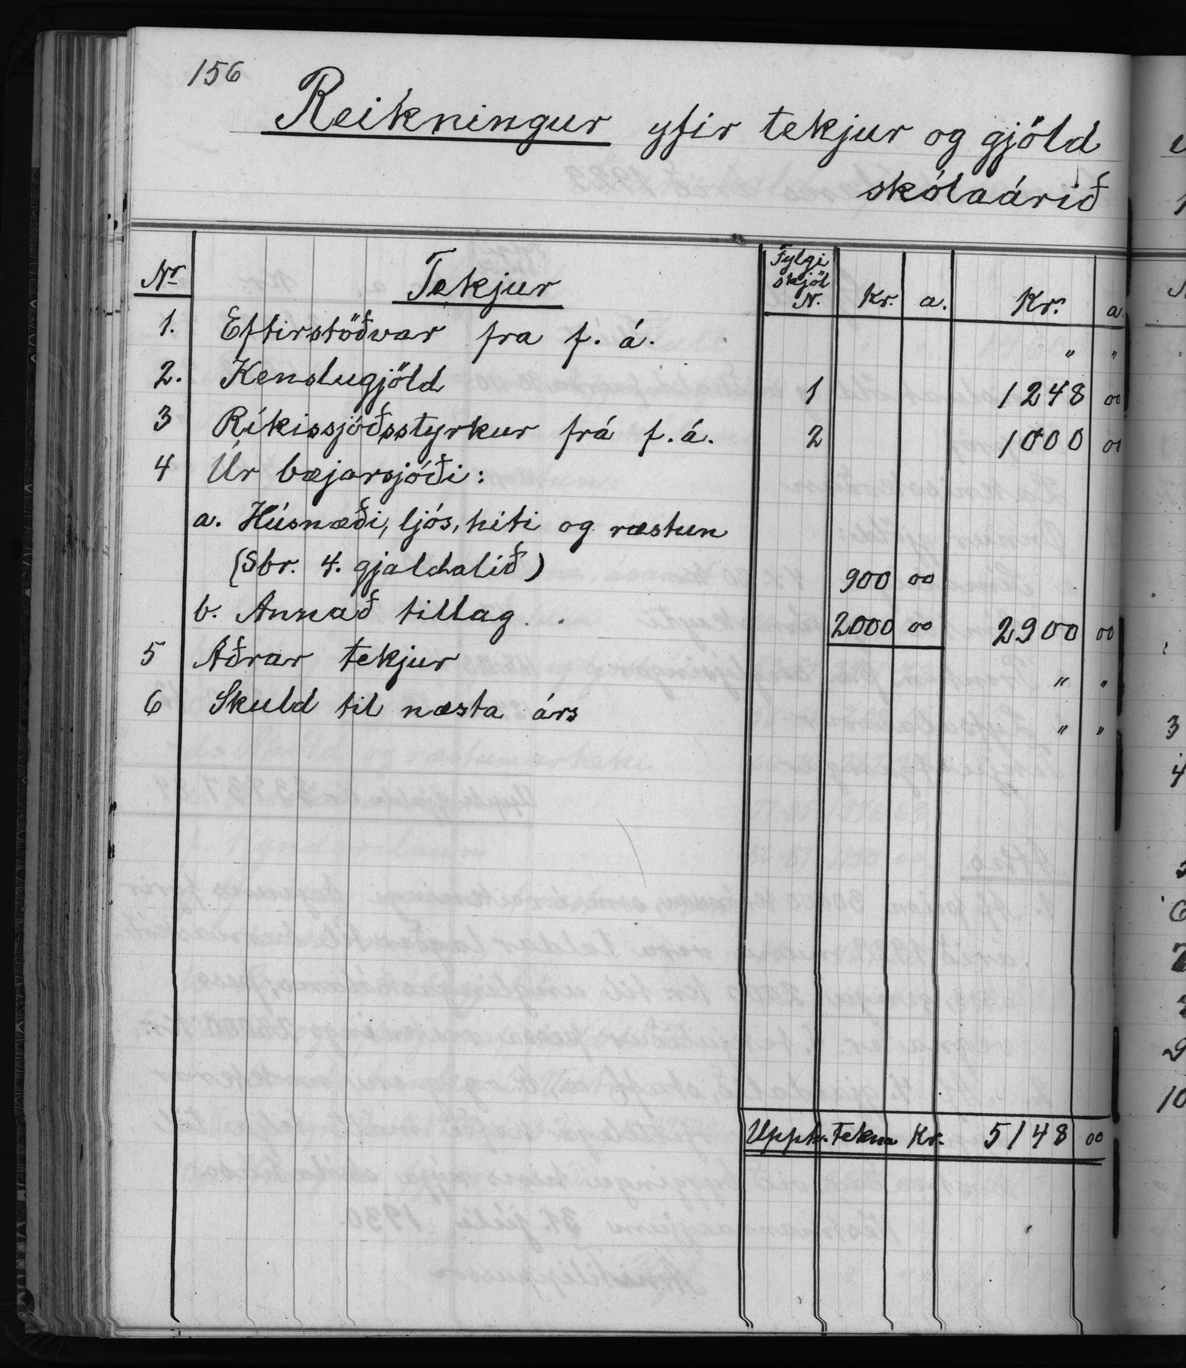 156
Reikningur yfir tekjur og gjöld
skólaárið
Nr Tekjur Fylgiskjöl N. Kr. a. Kr. a.
1. Eftirstöðvar fra f. á. " "
2. Kenslugjöld 1 1248 00
3 Ríkissjóðsstyrkur frá f. á. 2 1000 00
4 Úr bæjarsjóði:
a. Húsnæði, ljós, hiti og ræstun
(Sbr. 4. gjaldalið) 900 00
b. Annað tillag . . 2000 00 2900 00
5 Aðrar tekjur " "
6 Skuld til næsta árs " "
Upph. tekna Kr. 5148 00